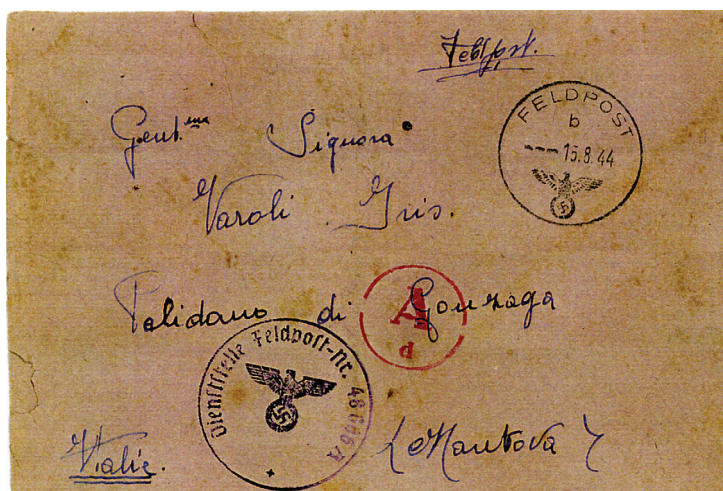 Feldpost.
FELDPOST
b
--- 15.8.44
Gent.ma Signora
Varoli Iris.
Palidano di Gonzaga
A
d
Dienststelle Feldpost-Nr.
Italie.
(Mantova)